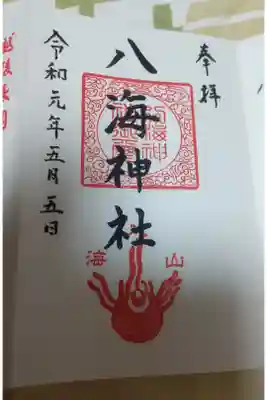 奉拝
八海神社
海 山
令和元年五月五日